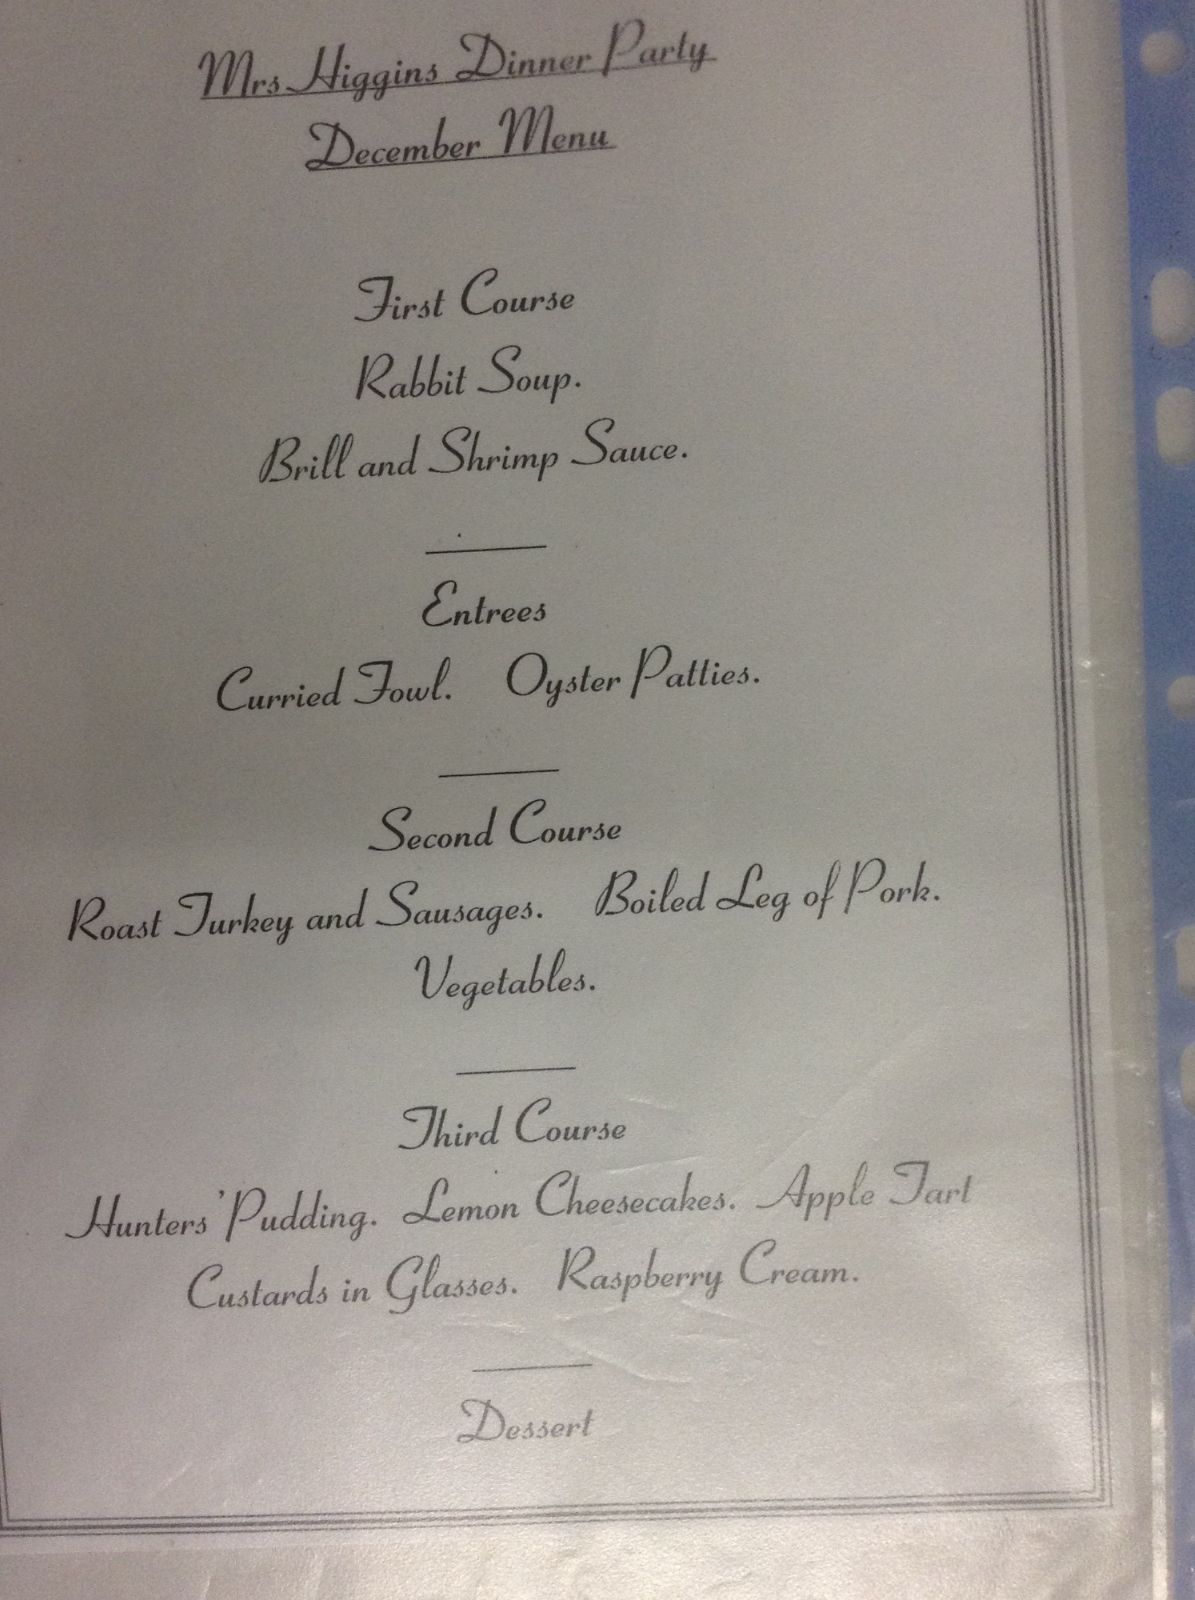 Mrs Higgins Dinner Party
December Menu
First Course
Rabbit Soup.
Brill and Shrimp Sauce.
Entrees
Curried Fowl. Oyster Patties.
Second Course
Roast Turkey and Sausages. Boiled Leg of Pork.
Vegetables.
Third Course
Hunters' Pudding. Lemon Cheesecakes. Apple Tart
Custards in Glasses. Raspberry Cream.
Dessert